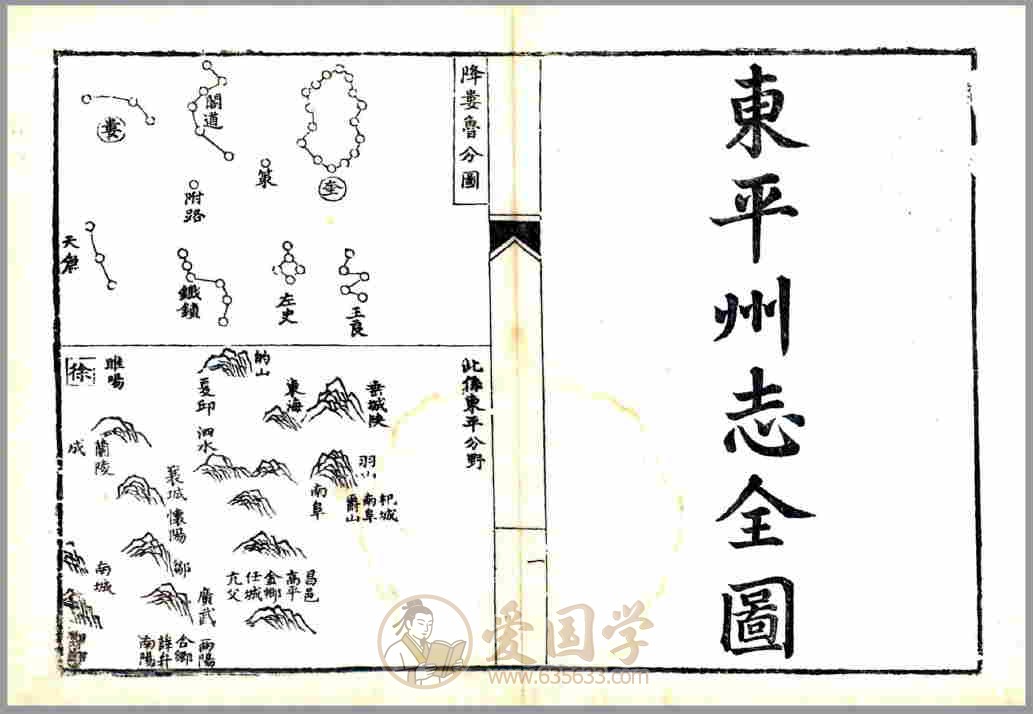 東平州志全圖
一
降婁魯分圖
奎
閣道
婁
策
附路
王良
左史
鐵鎖
天倉
此係東平分野
垂城陝
羽山
杞城
南阜
爵山
東海
南阜
納山
夏邱
泗水
昌邑
高平
金鄉
任城
亢父
睢陽
徐
蘭陵
成
襄城
懷陽
鄒
廣武
兩陽
合鄉
薛井
南陽
南城
爱国学
www.635633.com